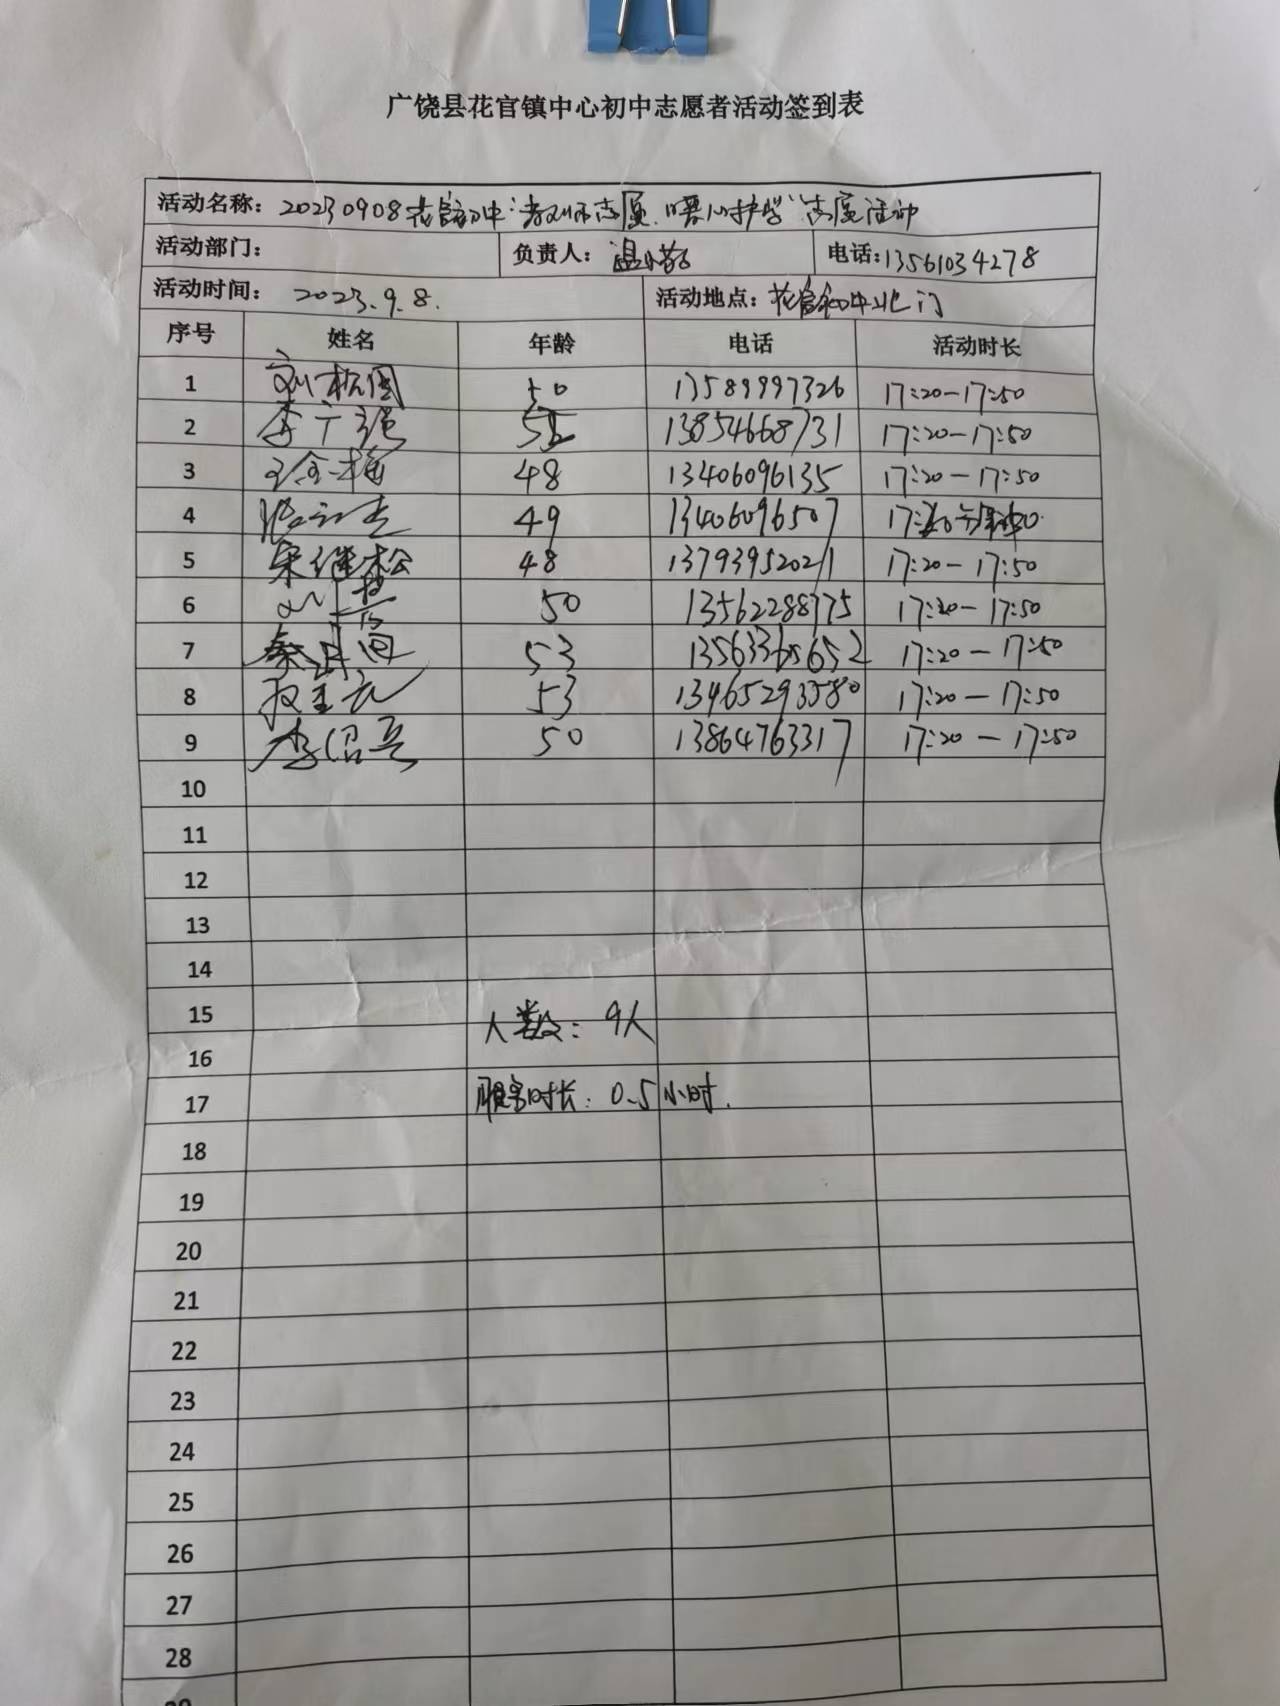 广饶县花官镇中心初中志愿者活动签到表
活动名称：20230908花官初中“教师志愿 暖心护学”志愿活动
活动部门： 负责人：温 电话：13561034278
活动时间：2023.9.8. 活动地点：花官初中北门
序号 姓名 年龄 电话 活动时长
1 刘松国 50 13589997326 17:20-17:50
2 李广强 13854668731 17:20-17:50
3 48 13406096135 17:20-17:50
4 49 13406096507
5 宋继松 48 13793952021 17:20-17:50
6 50 13562288775 17:20-17:50
7 秦 53 13563365652 17:20-17:50
8 53 13465293580 17:20-17:50
9 李绍亮 50 13864763317 17:20-17:50
10
11
12
13
14
15 人数：9人
16
17 服务时长：0.5小时.
18
19
20
21
22
23
24
25
26
27
28
29